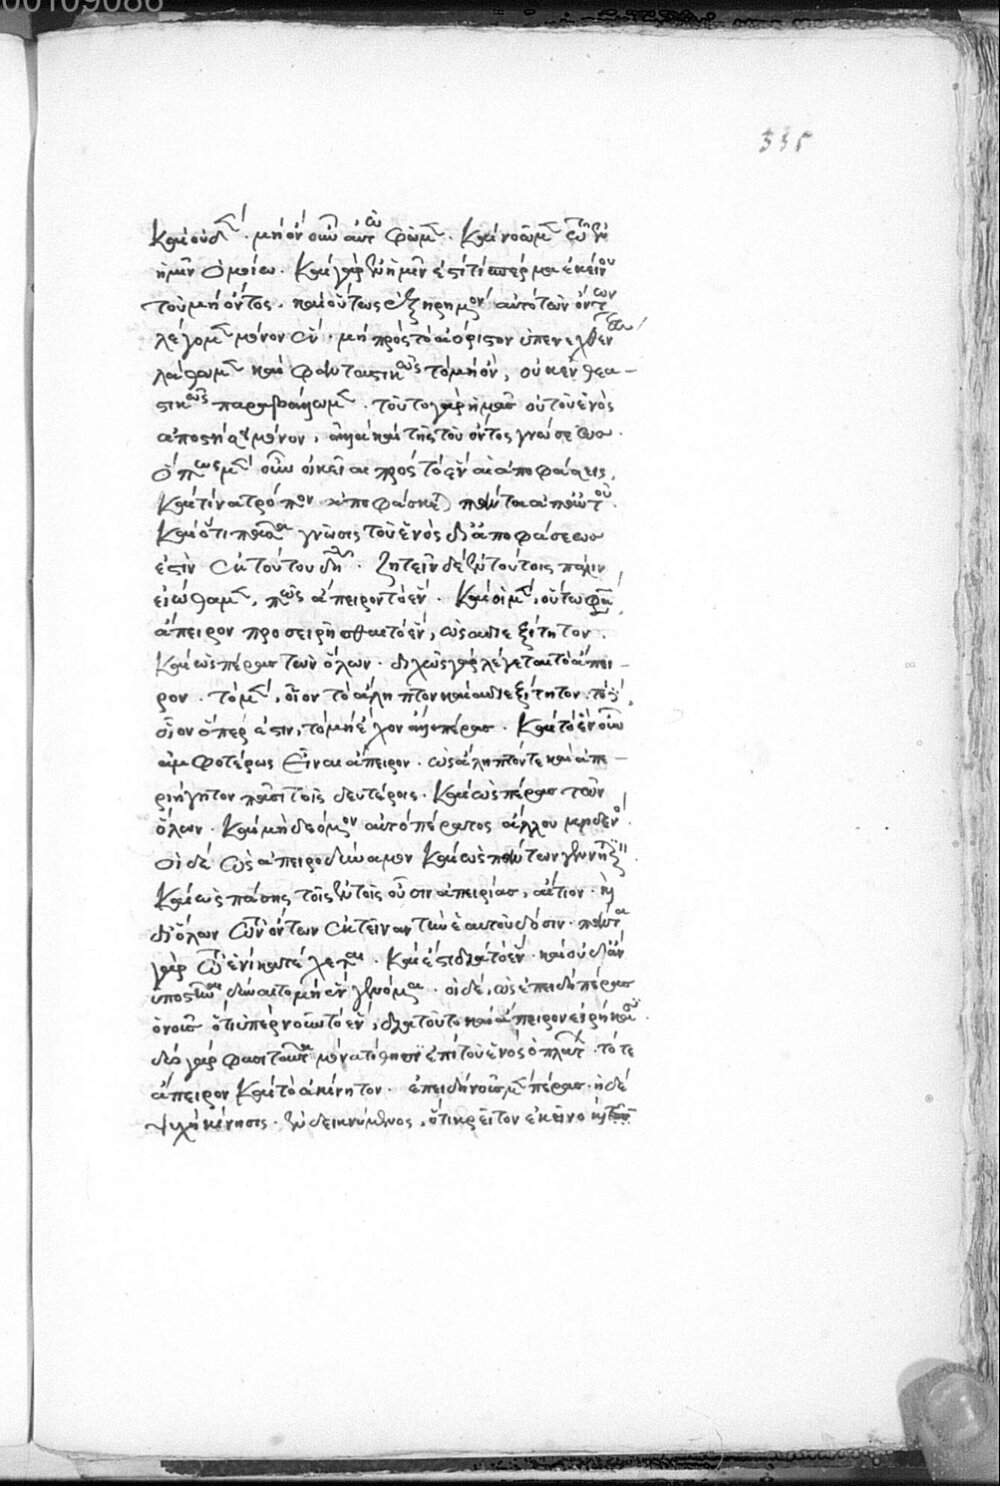 00109086
335
καὶ οὐδὲν. μὴ ὂν οὖν αὐτὸ φῶμεν. καὶ νοῶμεν
ἡμῖν ὁμοίω. καὶ γὰρ ἐν ἡμῖν ἐστί τι σπέρμα ἐκείνου
τοῦ μὴ ὄντος. καὶ οὕτως ἐξῃρημένον αὐτὸ τῶν ὄντων
λέγομεν μόνον ἕν. μὴ πρὸς τὸ ἀόριστον ὑπενεχθέντες
λάθωμεν καὶ φανταστικῶς τὸ μὴ ὄν, οὐκ ἐνθεα-
στικῶς παραβάλωμεν. τοῦτο γὰρ ἡμᾶς οὐ τοῦ ἑνὸς
ἀποστήσει μόνον, ἀλλὰ καὶ τῆς τοῦ ὄντος γνώσεως.
ὅπως μὲν οὖν οἰκεῖαι πρὸς τὸ ἓν αἱ ἀποφάσεις,
καὶ τίνα τρόπον ἀποφάσκεται πάντα ἀπ' αὐτοῦ.
καὶ ὅτι πᾶσα γνῶσις τοῦ ἑνὸς δι' ἀποφάσεως
ἐστὶν ἐκ τούτου δῆλον. ζητεῖν δὲ ἐν τούτοις πάλιν
εἰώθαμεν, πῶς ἄπειρον τὸ ἕν. καὶ οἱ μὲν, οὕτω φασὶν
ἄπειρον προσειρῆσθαι τὸ ἕν, ὡς ἀδιεξίτητον.
καὶ ὡς πέρας τῶν ὅλων. διχῶς γὰρ λέγεται τὸ ἄπει-
ρον. τὸ μὲν, οἷον τὸ ἄληπτον καὶ ἀδιεξίτητον. τὸ δὲ,
οἷον ὅπέρ ἐστιν, τὸ μὴ ἔχον ἄλλο πέρας. καὶ τὸ ἓν οὖν
ἀμφοτέρως εἶναι ἄπειρον. ὡς ἄληπτόν τε καὶ ἀπε-
ριήγητον πᾶσι τοῖς δευτέροις. καὶ ὡς πέρας τῶν
ὅλων. καὶ μὴ δεόμενον αὐτὸ πέρατος ἄλλου μηδενὸς.
οἱ δὲ ὡς ἀπειροδύναμον καὶ ὡς πάντων γεννητικὸν.
καὶ ὡς πάσης τῆς ἐν τοῖς οὖσιν ἀπειρίας, αἴτιον. καὶ
δι' ὅλων τῶν ὄντων ἐκτεῖναν τὴν ἑαυτοῦ δόσιν. πάντα
γὰρ τῷ ἑνὶ κατέχεται. καὶ ἔστι διὰ τὸ ἕν. καὶ οὐδ' ἂν
ὑποστῆναι δύναιτο μὴ ἓν γενόμενα. οἱ δὲ, ὡς ἐπειδὴ πέρας
ὁ νοῦς ὅτι ὑπὲρ νοῦν τὸ ἕν, διὰ τοῦτο καὶ ἄπειρον εἰρήκασι.
δύο γὰρ φασὶ ταῦτα μόνα τίθησιν ἐπὶ τοῦ ἑνὸς ὁ πλάτων. τό τε
ἄπειρον καὶ τὸ ἀκίνητον. ἐπειδὴ νοῦς μὲν πέρας. ἡ δὲ
ψυχὴ κίνησις. ἐνδεικνύμενος, ὅτι κρεῖττον ἐκεῖνο